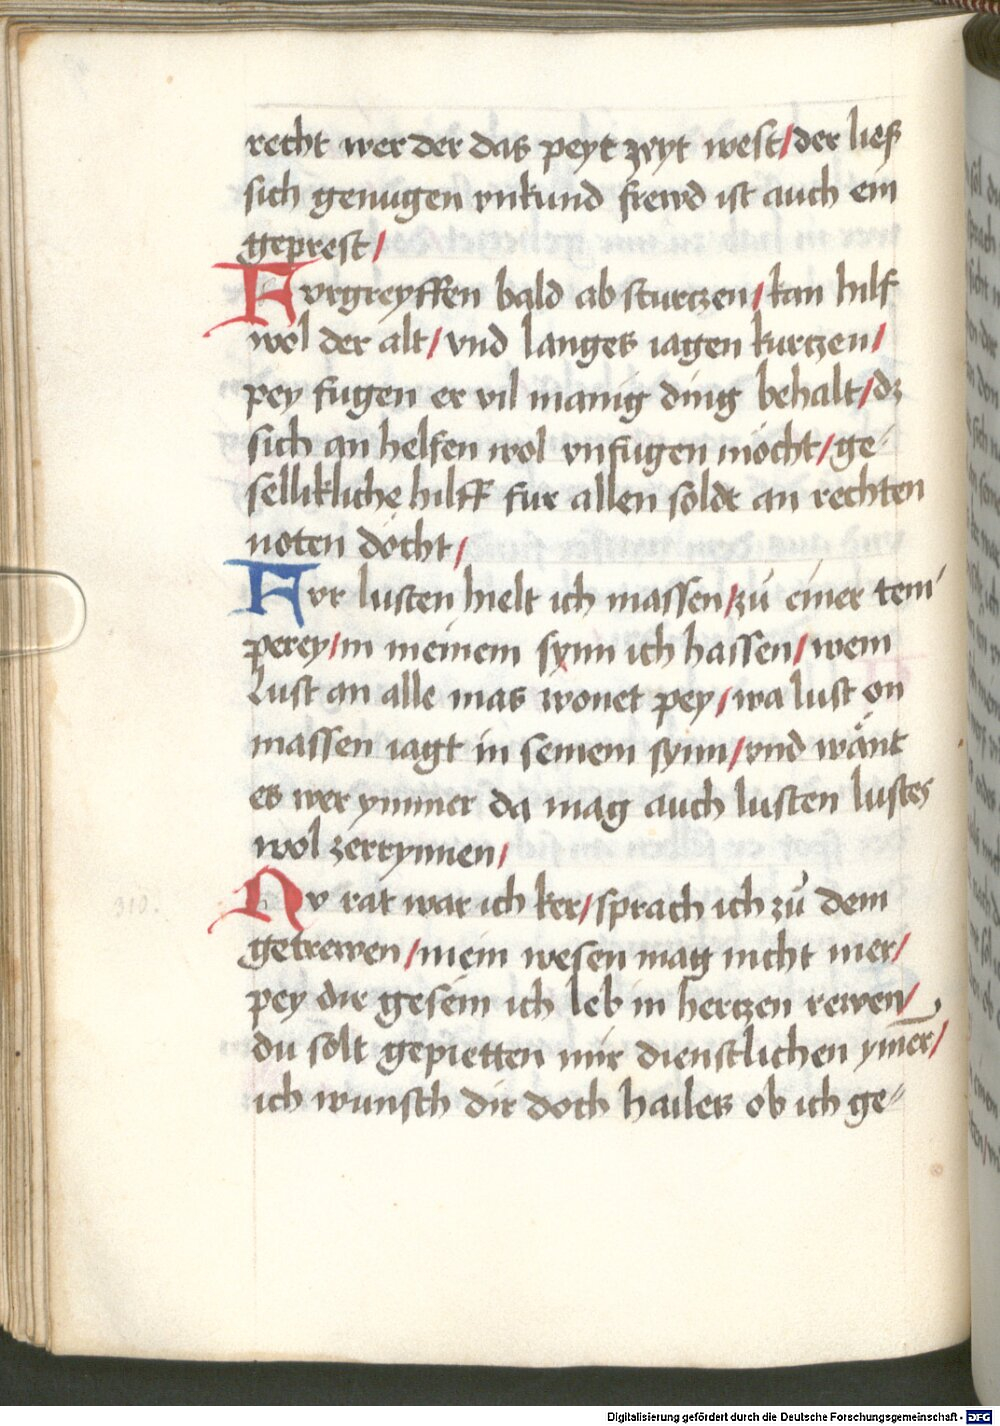 recht wer der das peyt zwyt west/der lieſs
sich genugen vnkund frewd ist auch ein
geprest/
Furgreyffen bald ab sturczen/kan hilf
wol der alt/vnd langes iagen kurczen/
pey fugen er vil manig ding behalt/dz
sich an helfen wol vnfugen möcht/ge-
sellikliche hilff fur allen soldt an rechten
noten döcht/
Fvr lusten hielt ich massen/zů einer tem
perey/in meinem synn ich hassen/wem
Lust an alle mas wonet pey/wa lust on
massen iagt in seinem synn/vnd wänt
es wer ymmer da mag auch lusten lustes
wol zerrynnen/
310.
Nv rat war ich ker/sprach ich zů dem
getrewen/mein wesen mag nicht mer/
pey dir gesein ich leb in herczen rewen/
du solt gepietten mir dienstlichen ym̄er/
ich wunsch dir doch hailes ob ich ge-
Digitalisierung gefördert durch die Deutsche Forschungsgemeinschaft - DFG